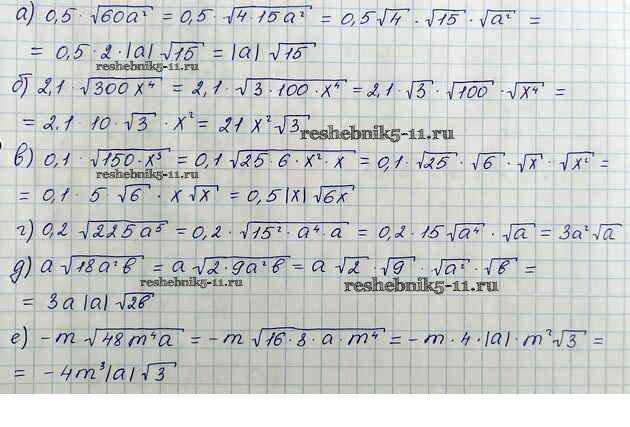 а) 0,5 · √60a² = 0,5 · √4·15a² = 0,5√4 · √15 · √a² =
= 0,5 · 2 · |a| √15 = |a| √15
reshebnik5-11.ru
б) 2,1 · √300x⁴ = 2,1 · √3·100·x⁴ = 2,1·√3 · √100 · √x⁴ =
= 2,1 · 10 · √3 · x² = 21x²√3
reshebnik5-11.ru
в) 0,1 · √150·x³ = 0,1 √25·6·x²·x = 0,1·√25 · √6 · √x · √x² =
reshebnik5-11.ru
= 0,1 · 5 · √6 · x√x = 0,5|x|√6x
г) 0,2 √225a⁵ = 0,2 · √15²·a⁴·a = 0,2·15√a⁴ · √a = 3a²√a
д) a √18a²в = a √2·9a²в = a √2 · √9 · √a² · √в =
reshebnik5-11.ru
reshebnik5-11.ru
= 3a|a|√2в
е) -m √48m⁴a = -m √16·3·a·m⁴ = -m·4·|a|·m²√3 =
= -4m³|a|√3